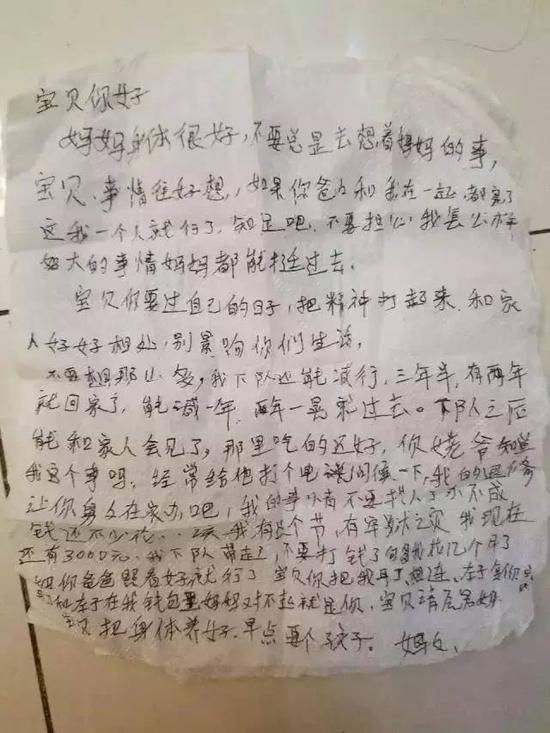 宝贝你好
妈妈身体很好,不要总是去想着妈妈的事,
宝贝、事情往好想,如果你爸爸和我在一起,都完了
这我一个人就行了,知足吧、不要担心我
大的事情妈妈都能挺过去。
宝贝你要过自己的日子,把精神打起来、和家
人好好相处,别影响你们生活,
不要想那么多,我下队还能减行,三年半,有两年
就回家了,能减一年,两年一晃就过去。下队之后
能和家人会见了,那里吃的还好,你姥爷知道
我这个事吗,经常给他打个电话问候一下,我的
让你舅舅在家办吧,我的事 不要找人了办不成
钱还不少花 我有这个 我现在
还有3000元、我下队带走了,不要打钱了 几个月了
把你爸爸照看好就行了 宝贝你把我
在我钱包里妈妈对不起就是你,宝贝
宝贝把身体养好、早点要个孩子。 妈妈